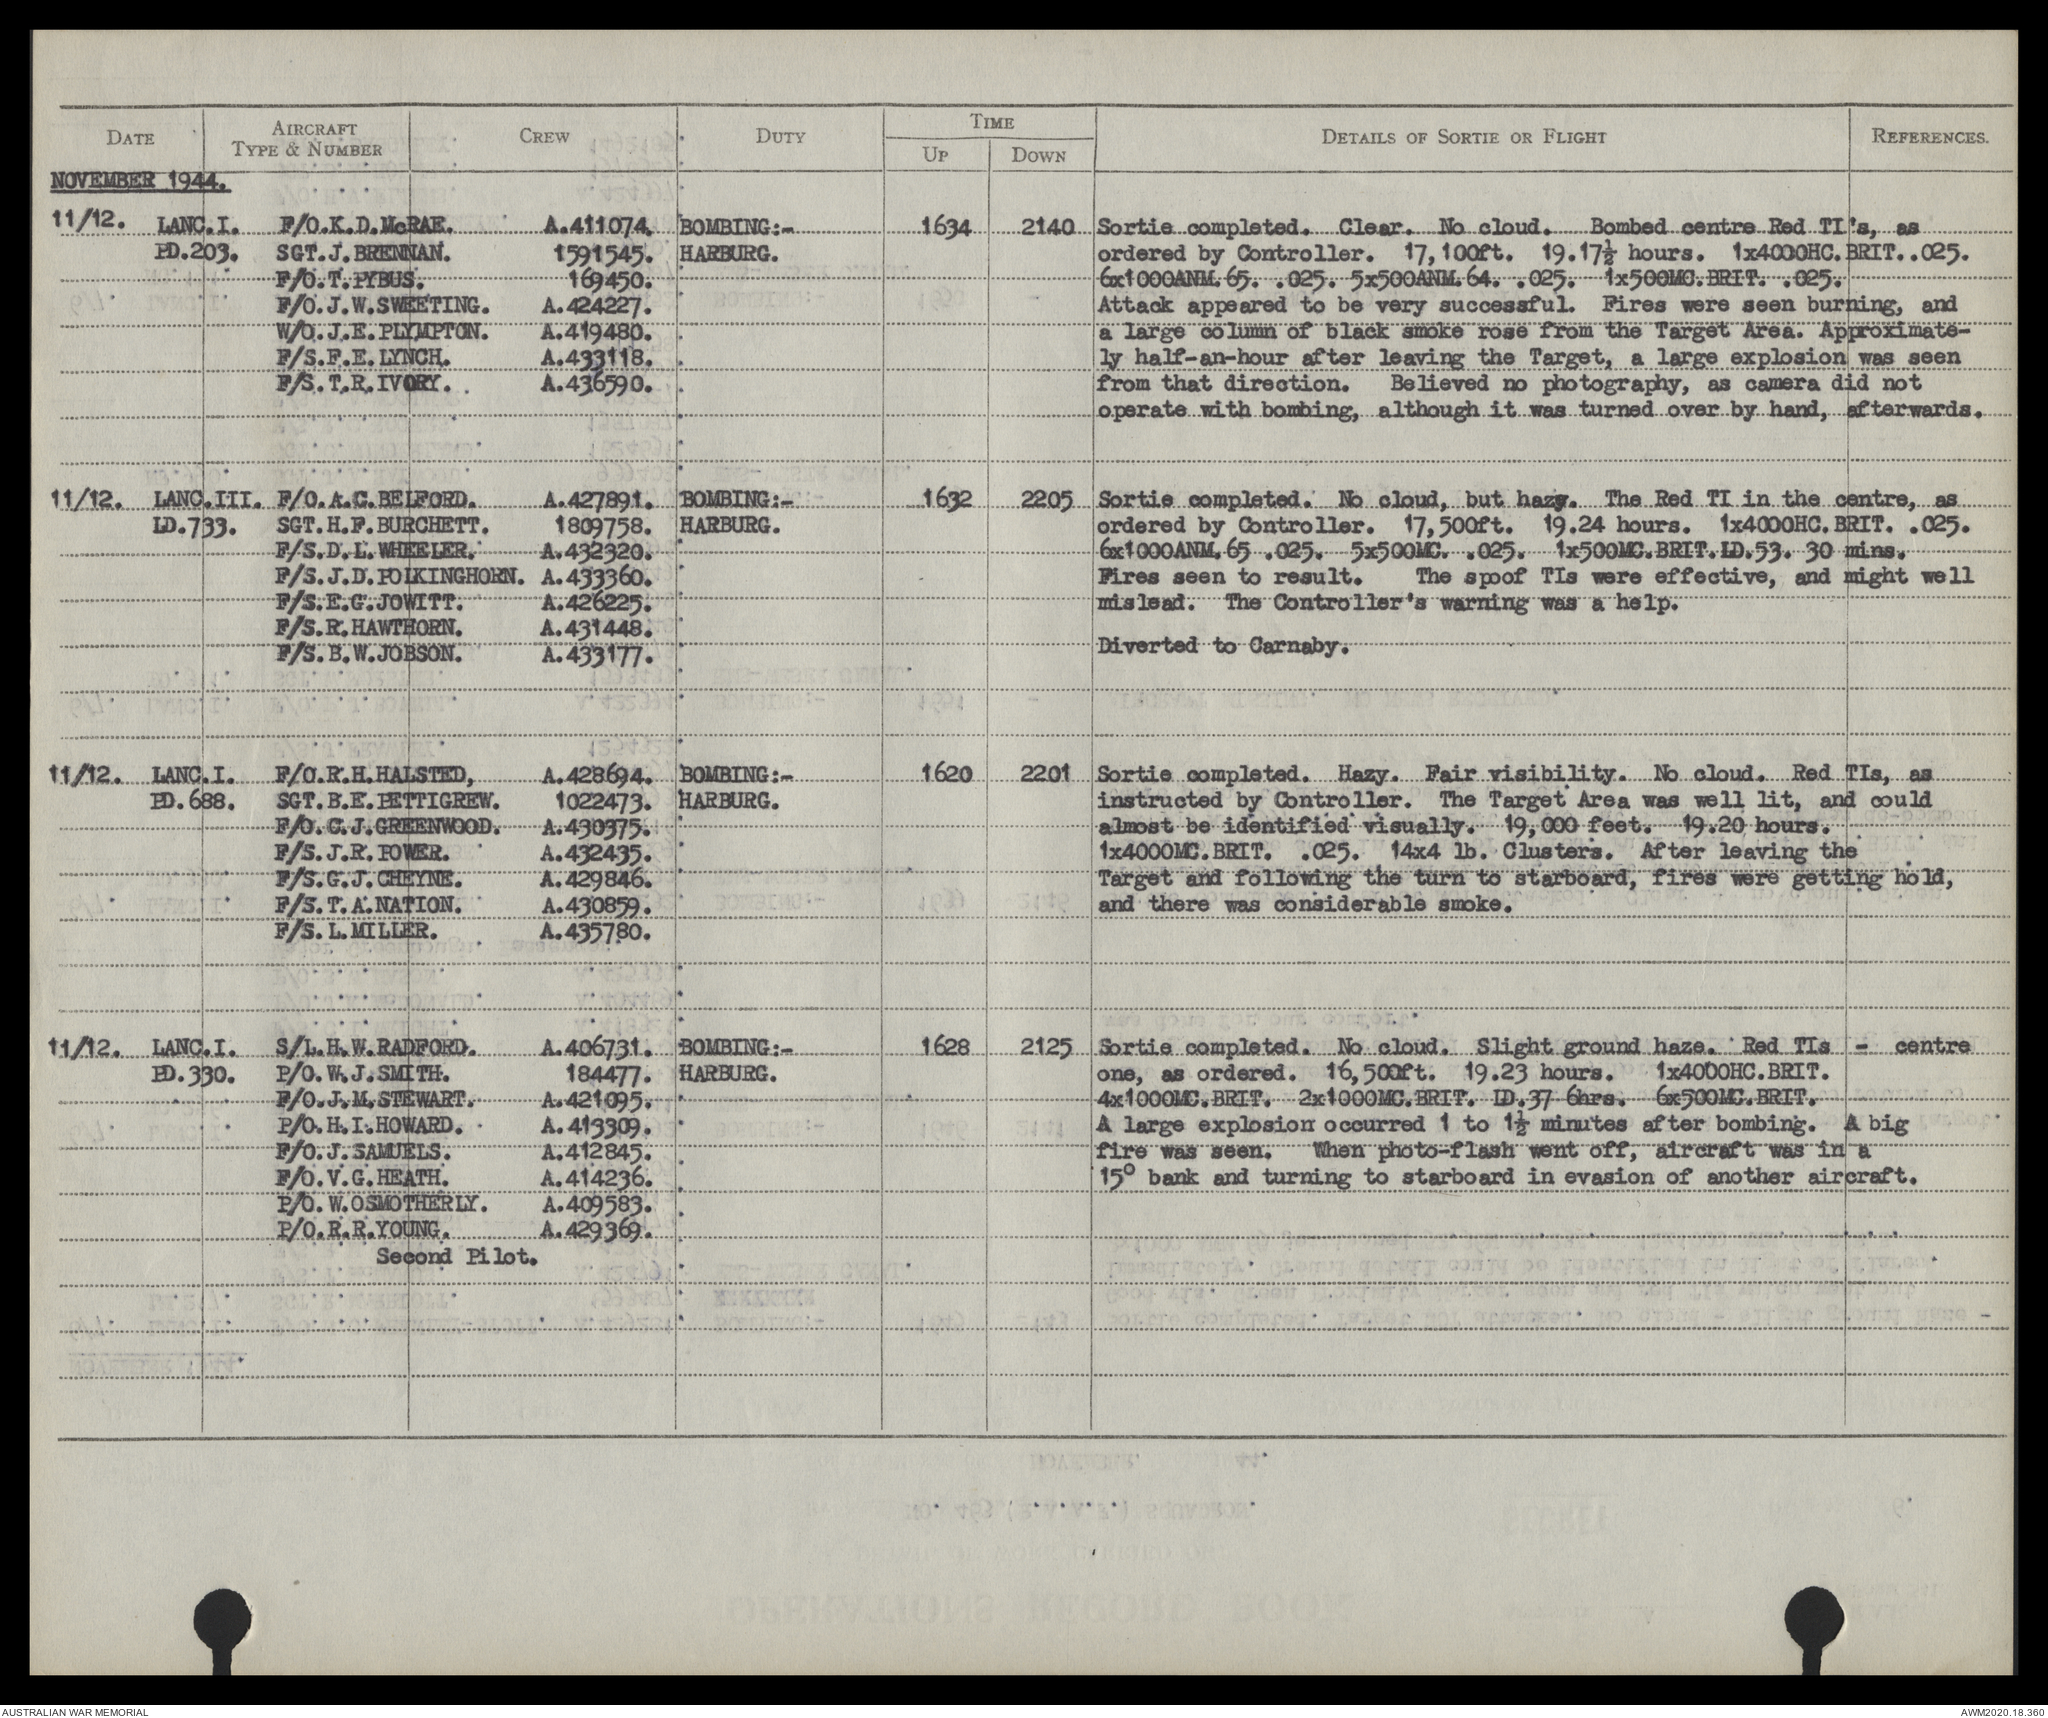 DATE AIRCRAFT TYPE & NUMBER CREW DUTY TIME UP DOWN DETAILS OF SORTIE OR FLIGHT REFERENCES.
NOVEMBER 1944.
11/12. LANC.I. F/O.K.D.McRAE. A.411074. BOMBING:- 1634 2140 Sortie completed. Clear. No cloud. Bombed centre Red TI's, as
PD.203. SGT.J.BRENNAN. 1591545. HARBURG. ordered by Controller. 17,100ft. 19.17½ hours. 1x4000HC.BRIT..025.
F/O.T.PYBUS. 169450. 6x1000ANM.65. .025. 5x500ANM.64. .025. 1x500MC.BRIT. .025.
F/O.J.W.SWEETING. A.424227. Attack appeared to be very successful. Fires were seen burning, and
W/O.J.E.PLYMPTON. A.419480. a large column of black smoke rose from the Target Area. Approximate-
F/S.F.E.LYNCH. A.433118. ly half-an-hour after leaving the Target, a large explosion was seen
F/S.T.R.IVORY. A.436590. from that direction. Believed no photography, as camera did not
operate with bombing, although it was turned over by hand, afterwards.
11/12. LANC.III. F/O.A.C.BELFORD. A.427891. BOMBING:- 1632 2205 Sortie completed. No cloud, but hazy. The Red TI in the centre, as
LD.733. SGT.H.F.BURCHETT. 1809758. HARBURG. ordered by Controller. 17,500ft. 19.24 hours. 1x4000HC.BRIT. .025.
F/S.D.L.WHEELER. A.432320. 6x1000ANM.65 .025. 5x500MC. .025. 1x500MC.BRIT.LD.53. 30 mins.
F/S.J.D.POLKINGHORN. A.433360. Fires seen to result. The spoof TIs were effective, and might well
F/S.E.G.JOWITT. A.426225. mislead. The Controller's warning was a help.
F/S.R.HAWTHORN. A.431448.
F/S.B.W.JOBSON. A.433177. Diverted to Carnaby.
11/12. LANC.I. F/O.R.H.HALSTED, A.428694. BOMBING:- 1620 2201 Sortie completed. Hazy. Fair visibility. No cloud. Red TIs, as
PD.688. SGT.B.E.PETTIGREW. 1022473. HARBURG. instructed by Controller. The Target Area was well lit, and could
F/O.C.J.GREENWOOD. A.430375. almost be identified visually. 19,000 feet. 19.20 hours.
F/S.J.R.POWER. A.432435. 1x4000MC.BRIT. .025. 14x4 lb. Clusters. After leaving the
F/S.G.J.CHEYNE. A.429846. Target and following the turn to starboard, fires were getting hold,
F/S.T.A.NATION. A.430859. and there was considerable smoke.
F/S.L.MILLER. A.435780.
11/12. LANC.I. S/L.H.W.RADFORD. A.406731. BOMBING:- 1628 2125 Sortie completed. No cloud. Slight ground haze. Red TIs - centre
PD.330. P/O.W.J.SMITH. 184477. HARBURG. one, as ordered. 16,500ft. 19.23 hours. 1x4000HC.BRIT.
F/O.J.M.STEWART. A.421095. 4x1000MC.BRIT. 2x1000MC.BRIT. LD.37 6hrs. 6x500MC.BRIT.
P/O.H.I.HOWARD. A.413309. A large explosion occurred 1 to 1½ minutes after bombing. A big
F/O.J.SAMUELS. A.412845. fire was seen. When photo-flash went off, aircraft was in a
F/O.V.G.HEATH. A.414236. 15° bank and turning to starboard in evasion of another aircraft.
P/O.W.OSMOTHERLY. A.409583.
P/O.R.R.YOUNG. A.429369.
Second Pilot.
AUSTRALIAN WAR MEMORIAL AWM2020.18.360